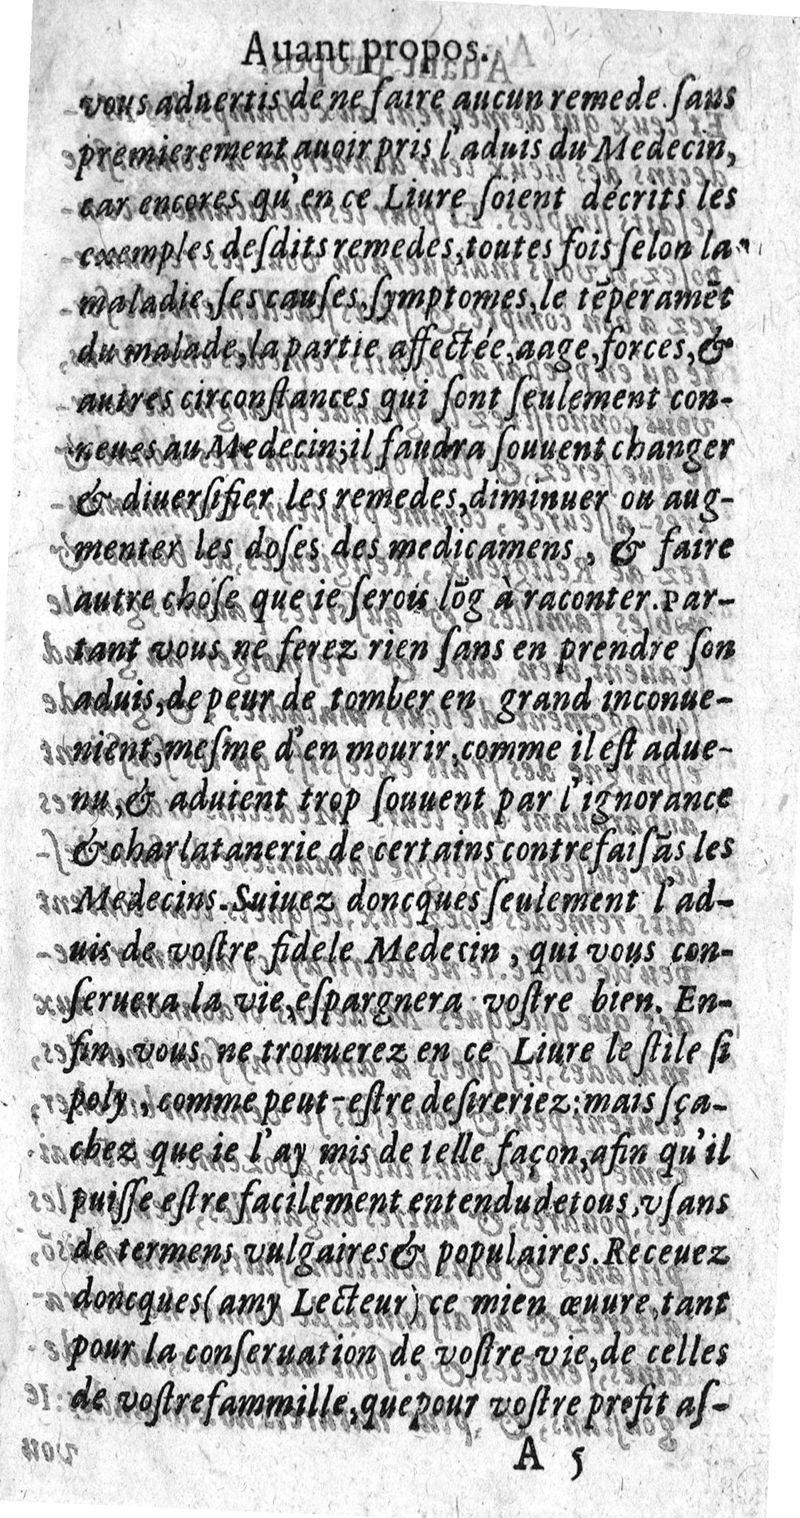 Auant propos.
vous aduertis de ne faire aucun remede ſans
premierement auoir pris l'aduis du Medecin,
car encores qu'en ce Liure ſoient décrits les
exemples deſdits remedes, toutes fois ſelon la
maladie, ſes cauſes, ſymptomes, le tēperamēt
du malade, la partie affectée, aage, forces, &
autres circonſtances qui ſont ſeulement con-
neues au Medecin; il faudra ſouuent changer
& diuerſifier les remedes, diminuer ou aug-
menter les doſes des medicamens, & faire
autre choſe que ie ſerois lōg à raconter. Par-
tant vous ne ferez rien ſans en prendre ſon
aduis, de peur de tomber en grand inconue-
nient, meſme d'en mourir, comme il eſt adue-
nu, & aduient trop ſouuent par l'ignorance
& charlatanerie de certains contrefaiſās les
Medecins. Suiuez doncques ſeulement l'ad-
uis de voſtre fidele Medecin, qui vous con-
ſeruera la vie, eſpargnera voſtre bien. En-
fin, vous ne trouuerez en ce Liure le ſtile ſi
poly, comme peut-eſtre deſireriez: mais ſça-
chez que ie l'ay mis de telle façon, afin qu'il
puiſſe eſtre facilement entendu de tous, vſans
de termens vulgaires & populaires. Receuez
doncques (amy Lecteur) ce mien œuure, tant
pour la conſeruation de voſtre vie, de celles
de voſtre fammille, que pour voſtre profit aſ-
A 5